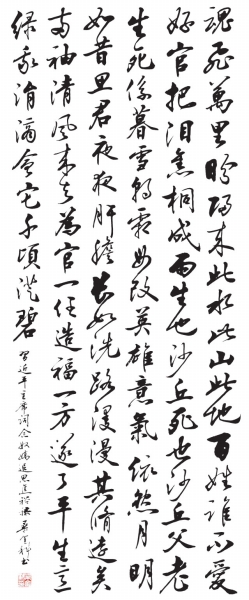 魂飛萬里盼歸來此水此山此地百姓誰不愛
好官把淚焦桐成雨生也沙丘死也沙丘父老
生死係暮雪朝霜毋改英雄意氣依然月明
如昔思君夜夜肝膽長如洗路漫漫其修遠矣
两袖清風來去為官一任造福一方遂了平生意
綠我涓滴會它千頃澄碧
習近平主席词念奴嬌追思焦裕祿